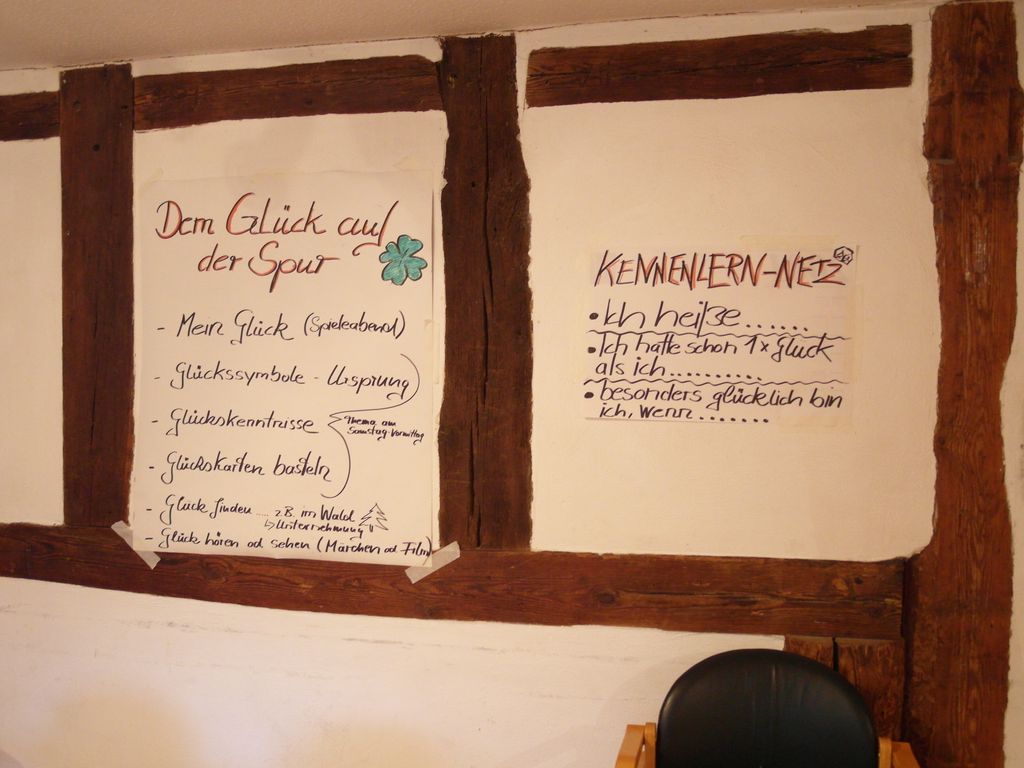 Dem Glück auf
der Spur
- Mein Glück (Spieleabend)
- Glückssymbole - Ursprung
- Glückskenntnisse
Thema am
Samstag-Vormittag
- Glückskarten basteln
- Glück finden ..... z.B. im Wald
↳ Unternehmung
- Glück hören od sehen (Märchen od Film)
KENNENLERN-NETZ
• Ich heiße.......
• Ich hatte schon 1x Glück
als ich...........
• besonders glücklich bin
ich, wenn........